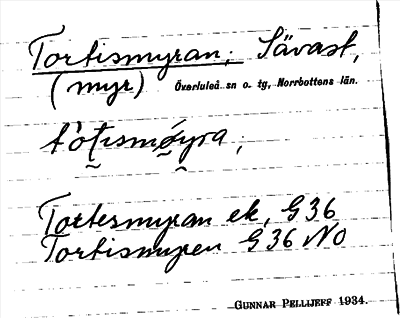 Tortismyran; Sävast,
(myr) Överluleå sn o. tg, Norrbottens län.
to̰ṯismøyra;
Tortesmyran ek, G 36
Tortismyren G 36 NO
GUNNAR PELLIJEFF 1934.